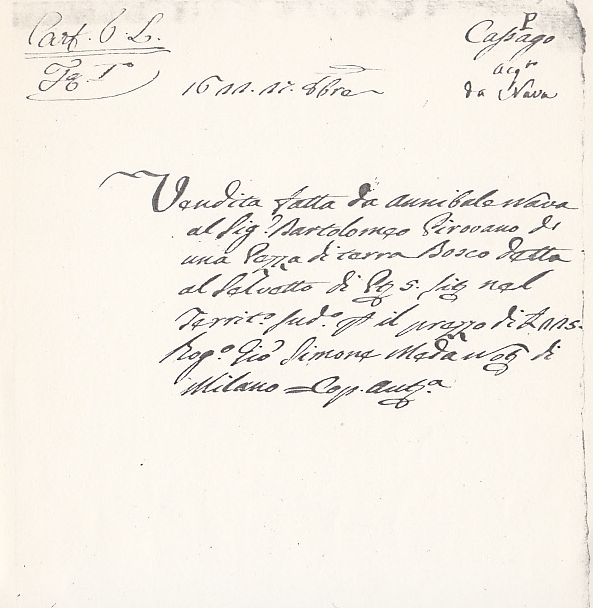 Cart. 6. L.
Fg. 1º
P
Cassago
acqto
da Nava
1611. 17. 8bre
Vendita fatta da Annibale Nava
al Sigr. Bartolomeo Pirovano di
una Pezza di terra Bosco detta
al Selvetto di 5. nel
Territº. sudº. il prezzo di L 115.
Rogº. Gio Simone Meda Nog di
Milano = Cop. autca